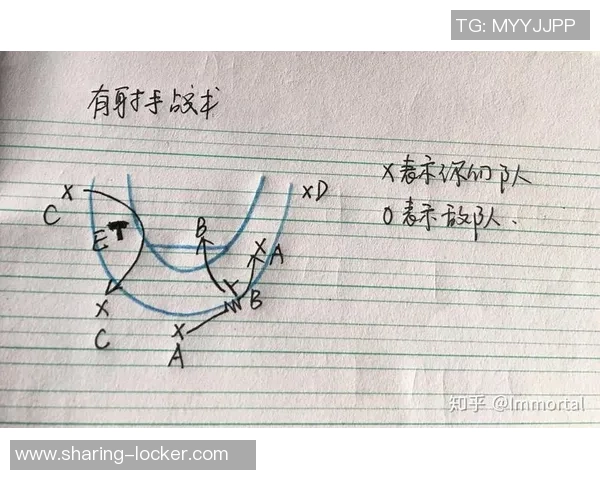 TG: MYYJJPP
有射手战术
X表示你的队
O表示敌队.
X
C
E
B
X
A
X D
X
C
X
A
B
知乎 @Immortal
www.sharing-locker.com